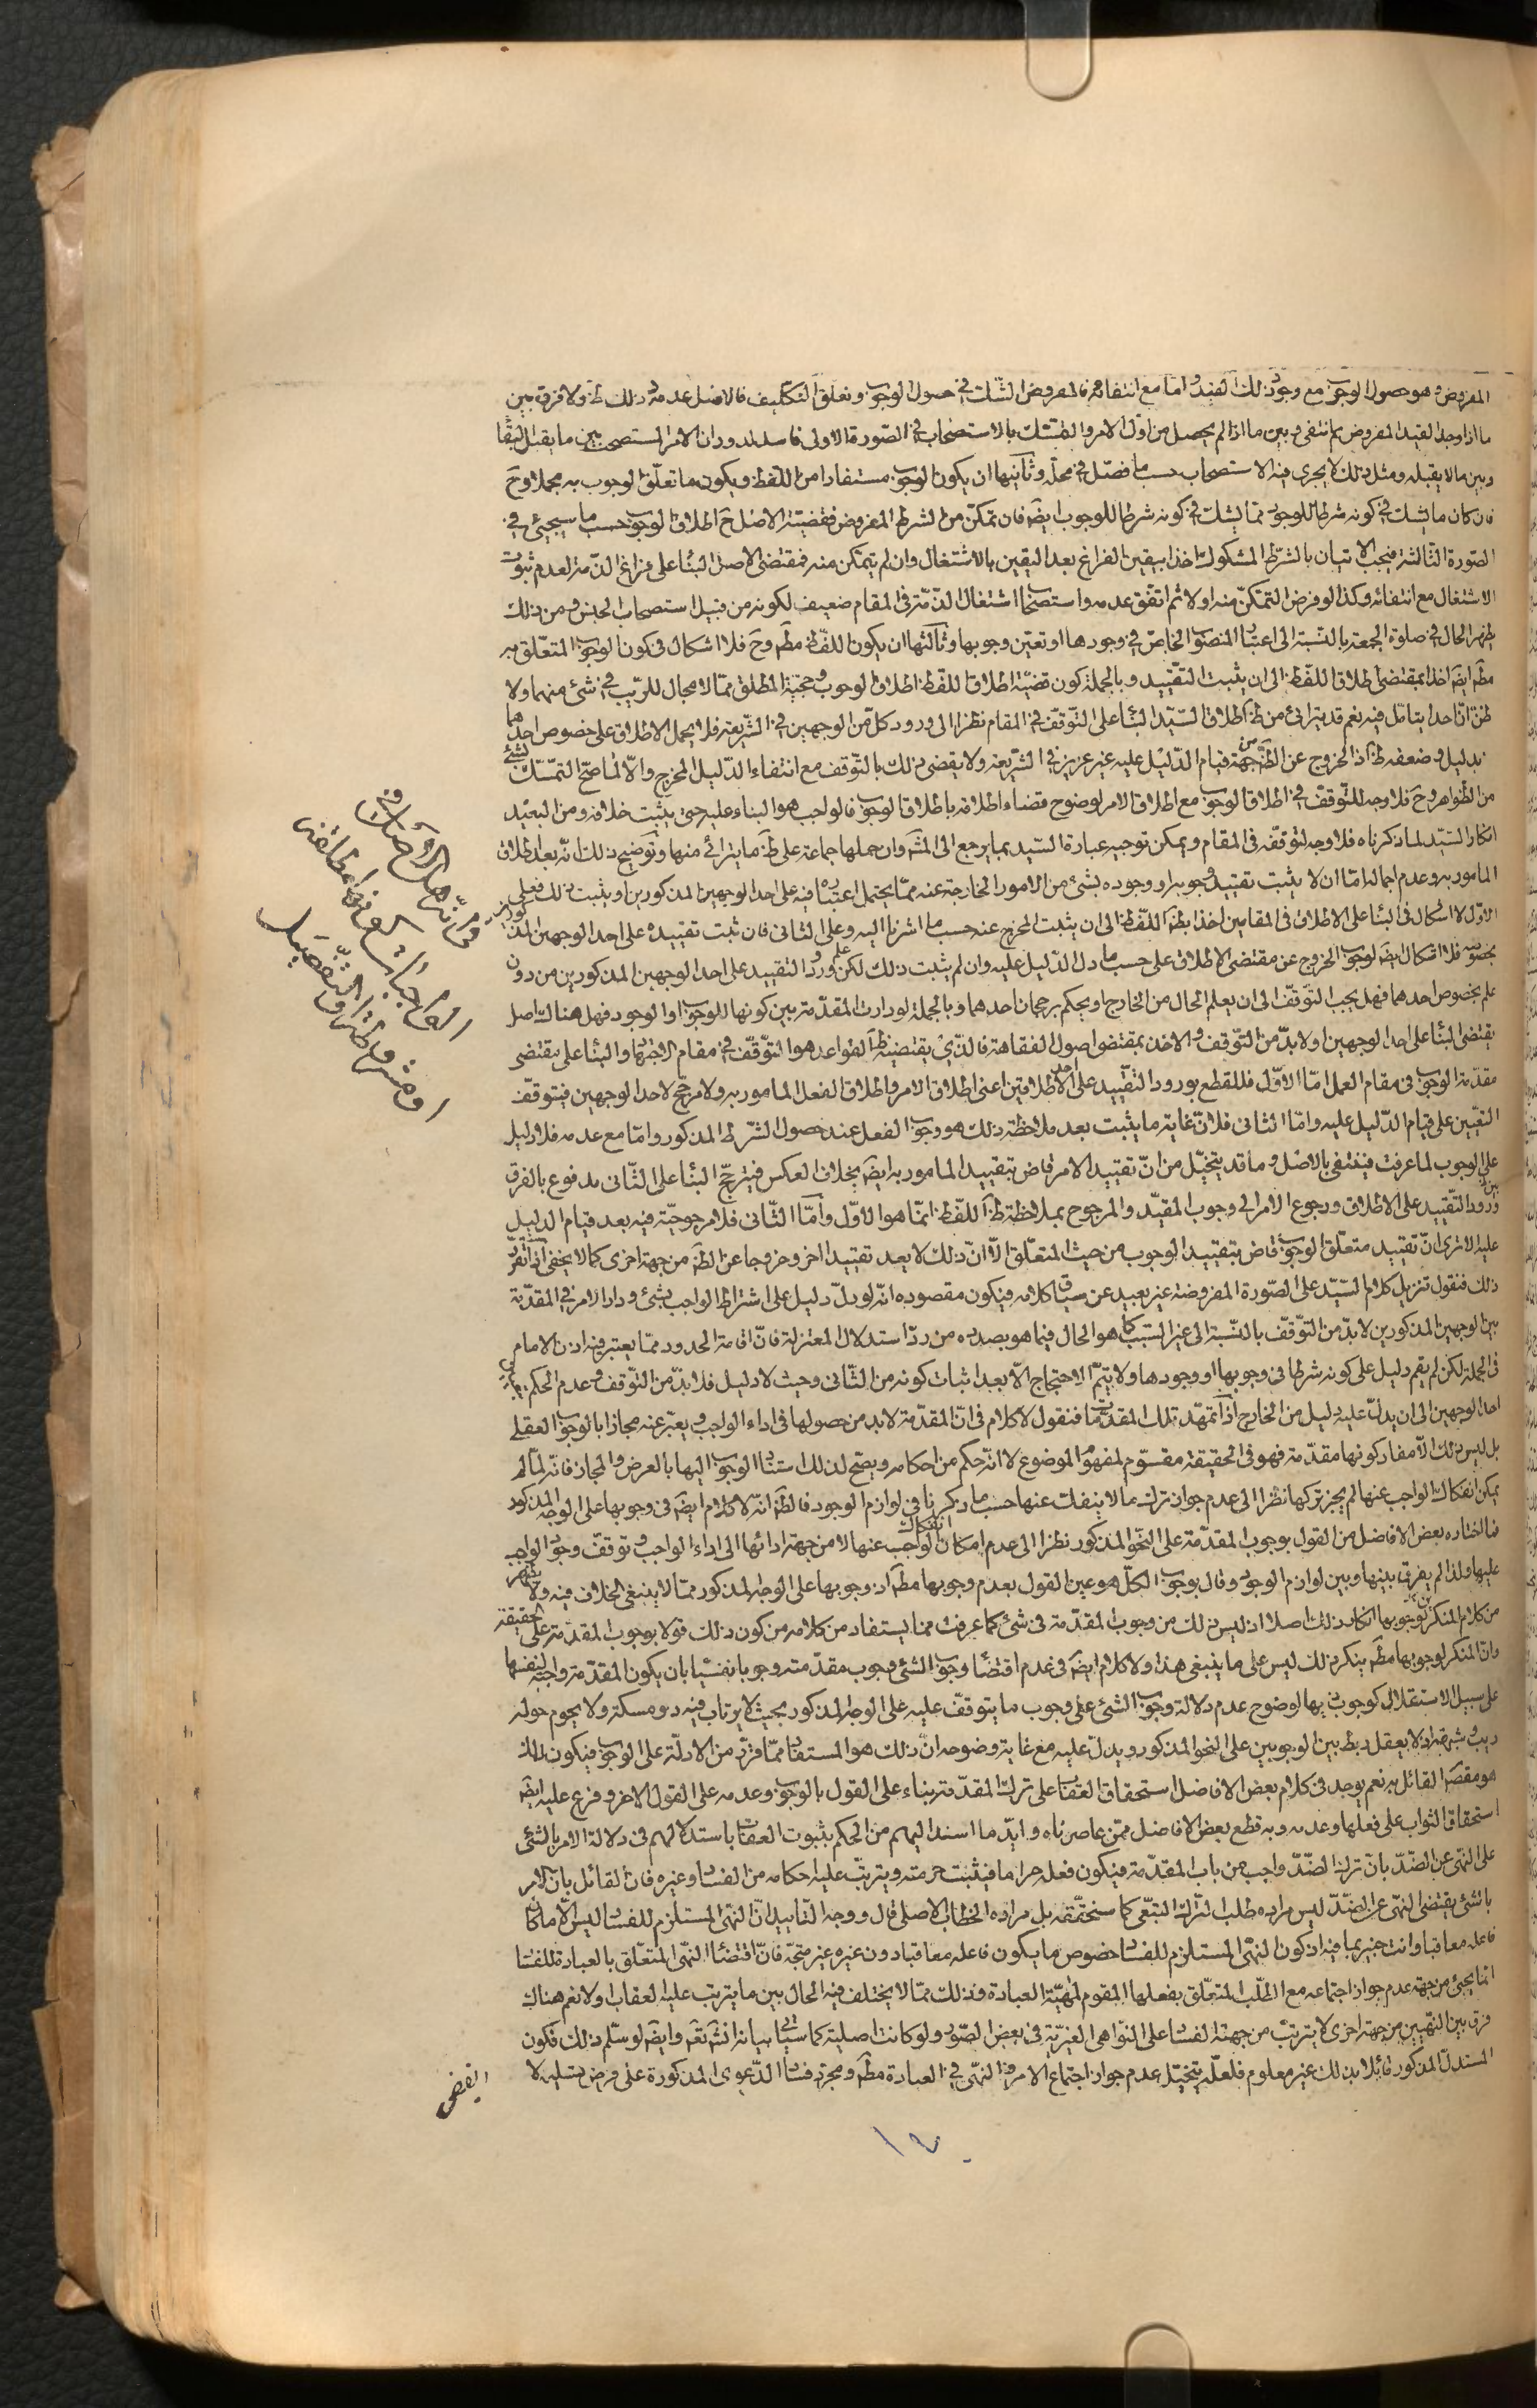 المفروض وهو حصول الوجوب مع وجود ذلك القيد واما مع انتفائه فالمفروض الشك في حصول الوجوب وتعلق التكليف فالاصل عدمه وذلك ظ ولا فرق بين
ما اذا وجد القيد المفروض ثم انتفى وبين ما اذا لم يحصل من اول الامر والتمسك بالاستصحاب في الصورة الاولى فاسد لدوران الامر المستصحب بين ما يقبل البقا
وبين ما لا يقبله ومثل ذلك لا يجرى فيه الاستصحاب حسب ما فصل في محله وثانيها ان يكون الوجوب مستفادا من اللفظ ويكون ما تعلق الوجوب به مجملا وح
فان كان ما يشك في كونه شرطا للوجود مما يشك في كونه شرطا للوجوب ايضه فان تمكن من الشرط المفروض فقضية الاصل ح اطلاق الوجوب حسب ما سيجيئ في
الصورة الثالثة فيجب الاتيان بالشرط المشكوك اخذا بيقين الفراغ بعد اليقين بالاشتغال وان لم يتمكن منه فمقتضى الاصل البنا على فراغ الذمة لعدم ثبوت
الاشتغال مع انتفائه وكذا لو فرض التمكن منه اولا ثم اتفق عدمه واستصحاب اشتغال الذمة في المقام ضعيف لكونه من قبيل استصحاب الجنس ومن ذلك
يظهر الحال في صلوة الجمعة بالنسبة الى اعتبار المنصوب الخاص في وجودها او تعين وجوبها وثالثها ان يكون اللفظ مطه وح فلا اشكال في كون الوجوب المتعلق به
مطه ايضه اخذا بمقتضى اطلاق اللفظ الى ان يثبت التقييد وبالجملة كون قضية اطلاق اللفظ اطلاق الوجوب وحجية المطلق مما لا مجال للريب في شئ منهما ولا
ظن ان احدا يتامل فيه نعم قد يترائى من ظ اطلاق السيد البنا على التوقف في المقام نظرا الى ورود كل من الوجهين في الشريعة فلا يحمل الاطلاق على خصوص احدهما
بدليل وضعفه ظ اذ الخروج عن الظه من جهة قيام الدليل عليه غير عزيز في الشريعة ولا يقضى ذلك بالتوقف مع انتفاء الدليل المخرج والا لما صح التمسك بشئ
من الظواهر وح فلا وجه للتوقف في اطلاق الوجوب مع اطلاق الامر لوضوح قضاء اطلاقه باطلاق الوجوب فالواجب هو البناء عليه حتى يثبت خلافه ومن البعيد
انكار السيد لما ذكرناه فلا وجه لتوقفه في المقام ويمكن توجيه عبارة السيد بما يرجع الى المشه وان حملها جماعة على ظه ما يترائى منها وتوضيح ذلك انه بعد اطلاق
المامور به وعدم اجماله اما ان لا يثبت تقييد وجوبه او وجوده بشئ من الامور الخارجة عنه مما يحتمل اعتباره فيه على احد الوجهين المذكورين او يثبت ذلك فعلى
الاول لا اشكال في البنا على الاطلاق في المقامين اخذا بظه اللفظ الى ان يثبت المخرج عنه حسب ما اشرنا اليه وعلى الثانى فان ثبت تقييده على احد الوجهين المذكورين
بخصوصه فلا اشكال ايضه لوجوب الخروج عن مقتضى الاطلاق على حسب ما دل الدليل عليه وان لم يثبت ذلك لكن علم ورود التقييد على احد الوجهين المذكورين من دون
علم بخصوص احدهما فهل يجب التوقف الى ان يعلم الحال من الخارج او يحكم برجحان احدهما وبالجملة لو دارت المقدمة بين كونها للوجوب او الوجود فهل هناك اصل
يقتضى البنا على احد الوجهين او لا بد من التوقف والاخذ بمقتضى اصول الفقاهة فالذى يقتضيه ظه القواعد هو التوقف في مقام الاجتهاد والبنا على نفى
مقدمة الوجوب في مقام العمل اما الاول فللقطع بورود التقييد على احد الاطلاقين اعنى اطلاق الامر واطلاق الفعل المامور به ولا مرجح لاحد الوجهين فيتوقف
التعيين على قيام الدليل عليه واما الثانى فلان غاية ما يثبت بعد ملاحظة ذلك هو وجوب الفعل عند حصول الشرط المذكور واما مع عدمه فلا دليل
على الوجوب لما عرفت فينتفى بالاصل وما قد يتخيل من ان تقييد الامر قاض بتقييد المامور به ايضه بخلاف العكس فيترجح البنا على الثانى مدفوع بالفرق
بين ورود التقييد على الاطلاق ورجوع الامر الى وجوب المقيد والمرجوح بملاحظة ظه اللفظ انما هو الاول واما الثانى فلا مرجوحية فيه بعد قيام الدليل
عليه الا ترى ان تقييد متعلق الوجوب قاض بتقييد الوجوب من حيث المتعلق الا ان ذلك لا يعد تقييدا اخر وخروجا عن الظه من جهة اخرى كما لا يخفى اذا تقرر
ذلك فنقول تنزيل كلام السيد على الصورة المفروضة غير بعيد عن سياق كلامه فيكون مقصوده انه لو دل دليل على اشتراط الواجب بشئ ودار الامر في المقدمة
بين الوجهين المذكورين لا بد من التوقف بالنسبة الى غير السبب كما هو الحال فيما هو بصدده من رد استدلال المعتزلة فان اقامة الحدود مما يعتبر فيه اذن الامام
في الجملة لكن لم يقم دليل على كونه شرطا في وجوبها او وجودها ولا يتم الاحتجاج الا بعد اثبات كونه من الثانى وحيث لا دليل فلا بد من التوقف وعدم الحكم
احد الوجهين الى ان يدل عليه دليل من الخارج اذا تمهد تلك المقدمات فنقول لا كلام في ان المقدمة لا بد من حصولها في اداء الواجب ويعبر عنه مجازا بالوجوب العقلى
بل ليس ذلك الا مفاد كونها مقدمة فهو في الحقيقة مقوم لمفهوم الموضوع لا انه حكم من احكامه ويصح لذلك استناد الوجوب اليها بالعرض والمجاز فانه لما لم
يمكن انفكاك الواجب عنها لم يجز تركها نظرا الى عدم جواز ترك ما لا ينفك عنها حسب ما ذكرنا في لوازم الوجود فالظه انه لا كلام ايضه في وجوبها على الوجه المذكور
فما اختاره بعض الافاضل من القول بوجوب المقدمة على النحو المذكور نظرا الى عدم امكان انفكاك الواجب عنها لا من جهة ادائها الى اداء الواجب وتوقف وجود الواجب
عليها ولذا لم يفرق بينها وبين لوازم الوجود وقال بوجوب الكل هو عين القول بعدم وجوبها مطه اذ وجوبها على الوجه المذكور مما لا ينبغى الخلاف فيه ولا يظهر
من كلام المنكرين لوجوبها انكار ذلك اصلا اذ ليس ذلك من وجوب المقدمة في شئ كما عرفت فما يستفاد من كلامه من كون ذلك قولا بوجوب المقدمة على الحقيقة
وان المنكر لوجوبها مطه ينكر ذلك ليس على ما ينبغى هذا ولا كلام ايضه في عدم اقتضاء وجوب الشئ وجوب مقدمته وجوبا نفسيا بان يكون المقدمة واجبة لنفسها
على سبيل الاستقلال كوجوب ذيها لوضوح عدم دلالة وجوب الشئ على وجوب ما يتوقف عليه على الوجه المذكور بحيث لا يرتاب فيه ذو مسكة ولا يحوم حوله
ريب وشبهة اذ لا يعقل ربط بين الوجوبين على النحو المذكور ويدل عليه مع غاية وضوحه ان ذلك هو المستفاد مما قرر من الادلة على الوجوب فيكون ذلك
هو مقصد القائل به نعم يوجد في كلام بعض الافاضل استحقاق العقاب على ترك المقدمة بناء على القول بالوجوب وعدمه على القول الاخر وفرع عليه ايضه
استحقاق الثواب على فعلها وعدمه وبه قطع بعض الافاضل ممن عاصرناه وايد ما اسند اليهم من الحكم بثبوت العقاب باستدلالهم في دلالة الامر بالشئ
على النهى عن الضد بان ترك الضد واجب من باب المقدمة فيكون فعله حراما فيثبت حرمته ويترتب عليه احكامه من الفساد وغيره فان القائل بان الامر
بالشئ يقتضى النهى عن الضد ليس مراده طلب الترك التبعى كما سنحققه بل مراده الخطاب الاصلى قال ووجه التاييد ان النهى المستلزم للفساد ليس الا ما كان
فاعله معاقبا وانت خبير بما فيه اذ كون النهى المستلزم للفساد خصوص ما يكون فاعله معاقبا دون غيره غير متجه فان اقتضاء النهى المتعلق بالعبادة للفساد
انما يجيئ من جهة عدم جواز اجتماعه مع الطلب المتعلق بفعلها المقوم لمهية العبادة وذلك مما لا يختلف فيه الحال بين ما يترتب عليه العقاب اولا نعم هناك
فرق بين النهيين من جهة اخرى لا يترتب من جهته الفساد على النواهى الغيرية في بعض الصور ولو كانت اصلية كما سيأتى بيانه انش تعه وايضه لو سلم ذلك فكون
المستدل المذكور قائلا بذلك غير معلوم فلعله يتخيل عدم جواز اجتماع الامر والنهى في العبادة مطه ومجرد فساد الدعوى المذكورة على فرض تسليمه لا
يقضى
١٧٠